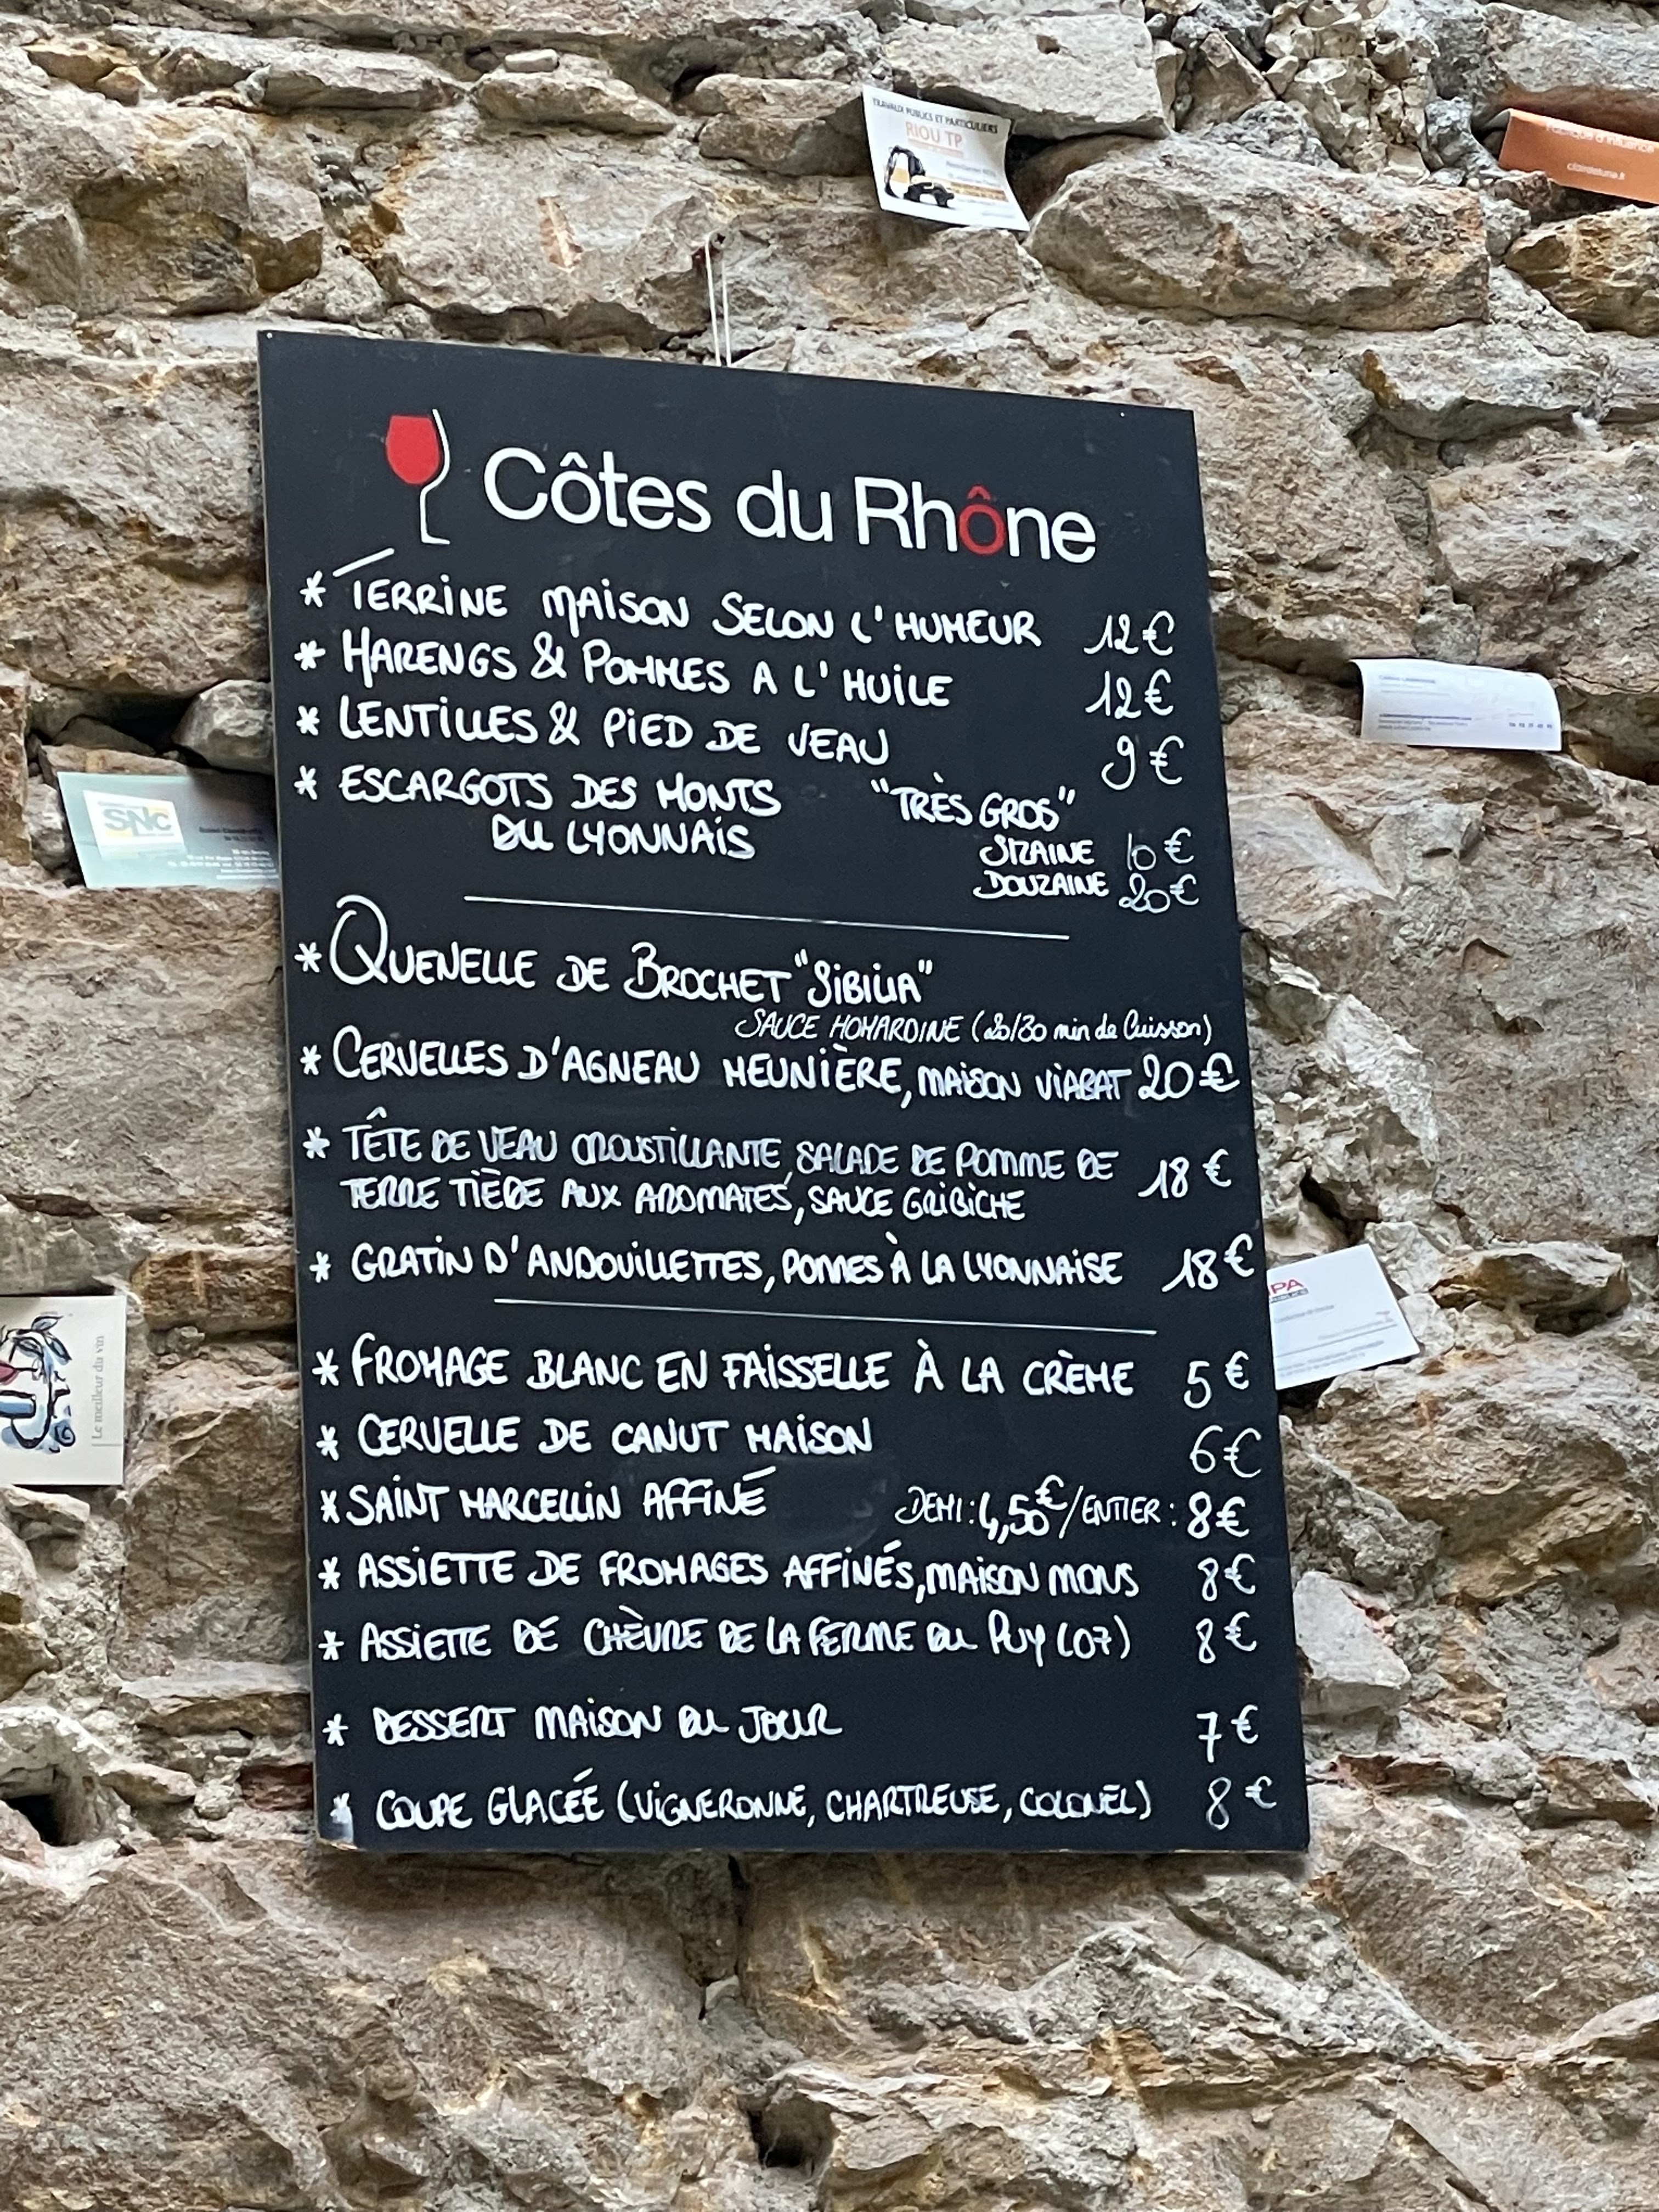 TRAVAUX PUBLICS ET PARTICULIERS
RIOU TP
clairdeluna.fr
Côtes du Rhône
* TERRINE MAISON SELON L'HUMEUR 12€
* HARENGS & POMMES A L'HUILE 12€
* LENTILLES & PIED DE VEAU 9€
* ESCARGOTS DES MONTS "TRÈS GROS"
DU LYONNAIS SIZAINE 10€
DOUZAINE 20€
* QUENELLE DE BROCHET "SIBILIA"
SAUCE HOMARDINE (20/30 min de Cuisson)
* CERVELLES D'AGNEAU MEUNIÈRE, MAISON VIABAT 20€
* TÊTE DE VEAU CROUSTILLANTE, SALADE DE POMME DE 18€
TERRE TIÈDE AUX AROMATES, SAUCE GRIBICHE
* GRATIN D'ANDOUILLETTES, POMMES À LA LYONNAISE 18€
* FROMAGE BLANC EN FAISSELLE À LA CRÈME 5€
* CERVELLE DE CANUT MAISON 6€
* SAINT MARCELLIN AFFINÉ DEMI: 4,50€/ENTIER: 8€
* ASSIETTE DE FROMAGES AFFINÉS, MAISON MONS 8€
* ASSIETTE DE CHÈVRE DE LA FERME DU PUY (07) 8€
* DESSERT MAISON DU JOUR 7€
* COUPE GLACÉE (VIGNERONNE, CHARTREUSE, COLONEL) 8€
SNC
Le meilleur du vin